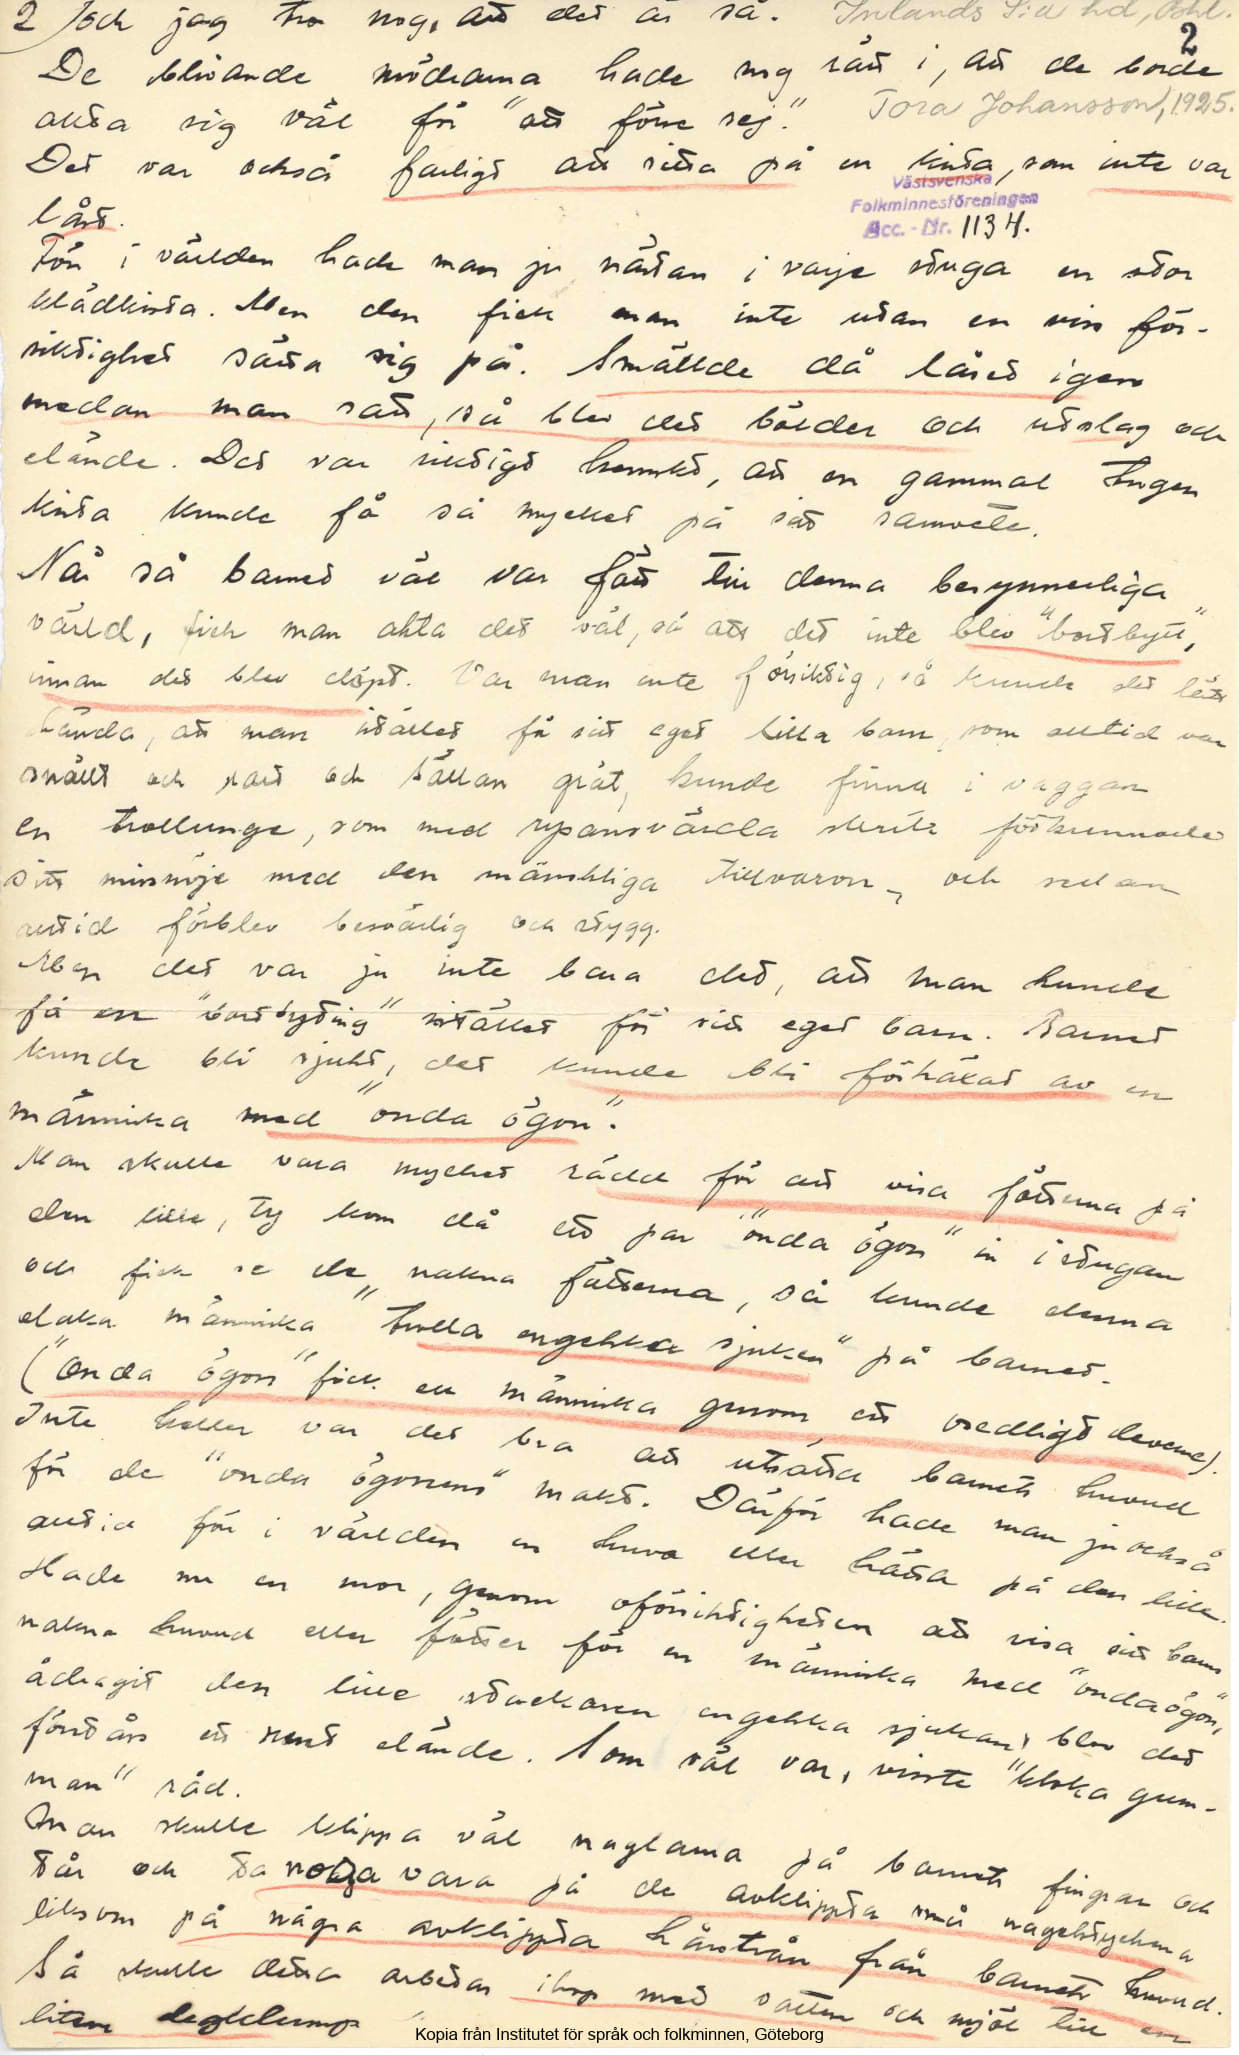 2 och jag tror nog, att det är så. Inlands S:a hd, Bohl.
2
De blivande mödrarna hade nog rätt i, att de borde
akta sig väl för "att förse sej." Tora Johansson, 1925.
Det var också farligt att sitta på en kista, som inte var
låst.
Västsvenska
Folkminnesföreningen
Acc.-Nr. 1134.
Förr i världen hade man ju nästan i varje stuga en stor
klädkista. Men den fick man inte utan en viss för-
siktighet sätta sig på. Smällde då låset igen
medan man satt, så blev det bölder och utslag och
elände. Det var riktigt hemskt, att en gammal
kista kunde få så mycket på sitt samvete.
När så barnet väl var fött till denna besynnerliga
värld, fick man akta det väl, så att det inte blev "bortbytt",
innan det blev döpt. Var man inte försiktig, så kunde det lätt
hända, att man istället för sitt eget lilla barn, som alltid var
snällt och rart och sällan grät, kunde finna i vaggan
en trollunge, som med respansvärda skrik förkunnade
sitt missnöje med den mänskliga tillvaron, och sedan
alltid förblev besvärlig och stygg.
Men det var ju inte bara det, att man kunde
få en "bortbyting" istället för sitt eget barn. Barnet
kunde bli sjukt, det kunde bli förhäxat av en
människa med "onda ögon".
Man skulle vara mycket rädd för att visa fötterna på
den lille, ty kom då ett par "onda ögon" in i stugan
och fick se de nakna fötterna, så kunde denna
elaka människa "trolla engelska sjukan" på barnet.
("Onda ögon" fick en människa genom ett osedligt leverne).
Inte heller var det bra att utsätta barnets huvud
för de "onda ögonens" makt. Därför hade man ju också
alltid förr i världen en huva eller hätta på den lille.
Hade nu en mor, genom oförsiktigheten att visa sitt barns
nakna huvud eller fötter för en människa med "onda ögon",
ådragit den lille stackaren engelska sjukan, blev det
förstås ett rent elände. Som väl var, visste "kloka gum-
man" råd.
Man skulle klippa väl naglarna på barnets fingrar och
tår och ta noga vara på de avklippta små nagelstyckena
liksom på några avklippta hårstrån från barnets huvud.
Så skulle detta arbetas ihop med vatten och mjöl till en
liten degklump
Kopia från Institutet för språk och folkminnen, Göteborg